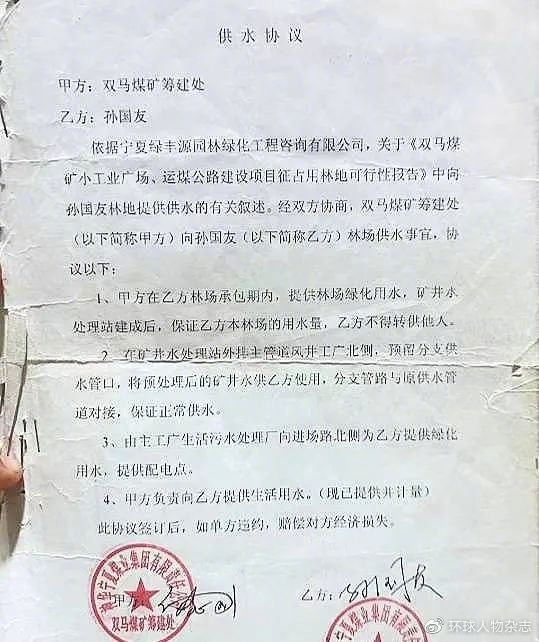 供水协议
甲方：双马煤矿筹建处
乙方：孙国友
依据宁夏绿丰源园林绿化工程咨询有限公司，关于《双马煤
矿小工业广场、运煤公路建设项目征占用林地可行性报告》中向
孙国友林地提供供水的有关叙述。经双方协商，双马煤矿筹建处
（以下简称甲方）向孙国友（以下简称乙方）林场供水事宜，协
议以下：
1、甲方在乙方林场承包期内，提供林场绿化用水，矿井水
处理站建成后，保证乙方本林场的用水量，乙方不得转供他人。
2、在矿井水处理站外排主管道风井工广北侧，预留分支供
水管口，将预处理后的矿井水供乙方使用，分支管路与原供水管
道对接，保证正常供水。
3、由主工广生活污水处理厂向进场路北侧为乙方提供绿化
用水，提供配电点。
4、甲方负责向乙方提供生活用水。（现已提供并计量）
此协议签订后，如单方违约，赔偿对方经济损失。
宁夏煤业集团有限责任公司
双马煤矿筹建处
甲方：
乙方：孙国友
环球人物杂志